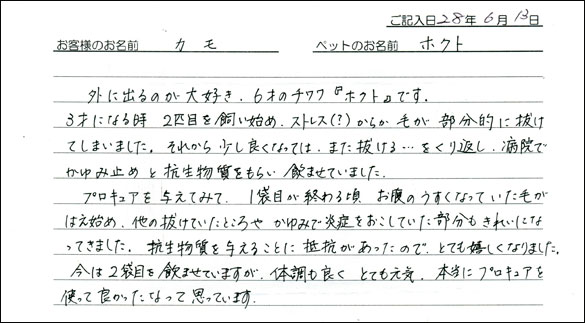 ご記入日28年6月13日
お客様のお名前 カモ ペットのお名前 ホクト
外に出るのが大好き、6才のチワワ『ホクト』です。
3才になる時 2匹目を飼い始め、ストレス(?)からか毛が部分的に抜け
てしまいました。それから少し良くなっては、また抜ける…をくり返し、病院で
かゆみ止めと抗生物質をもらい飲ませていました。
プロキュアを与えてみて、1袋目が終わる頃 お腹のうすくなっていた毛が
はえ始め、他の抜けていたところや かゆみで炎症をおこしていた部分もきれいにな
ってきました。抗生物質を与えることに抵抗があったので、とても嬉しくなりました。
今は2袋目を飲ませていますが、体調も良く とても元気。本当にプロキュアを
使って良かったなって思っています。